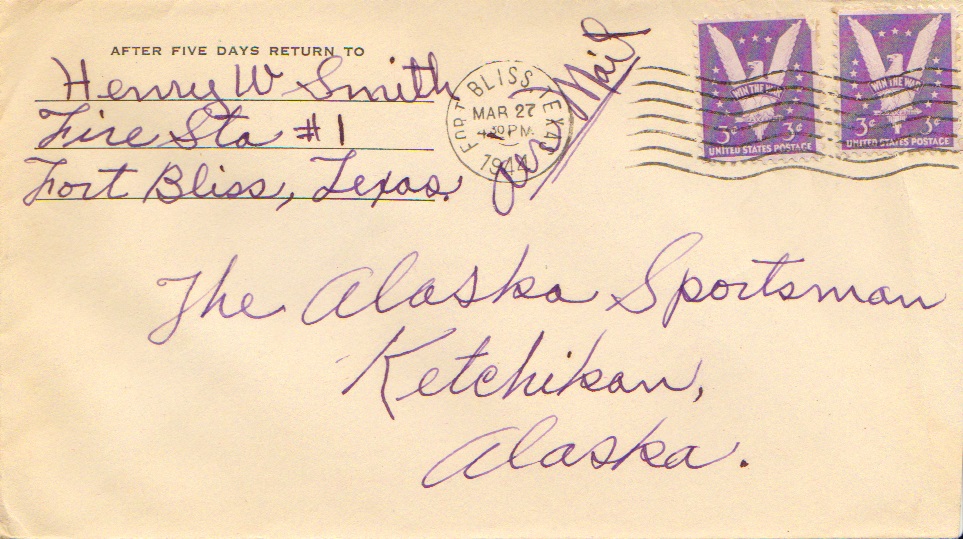 AFTER FIVE DAYS RETURN TO
Henry W Smith
Fire Sta #1
Fort Bliss, Texas.
FORT BLISS TEXAS
MAR 27
4 30 PM
1944
Air Mail
WIN THE WAR
3¢ 3¢
UNITED STATES POSTAGE
WIN THE WAR
3¢ 3¢
UNITED STATES POSTAGE
The Alaska Sportsman
Ketchikan,
Alaska.